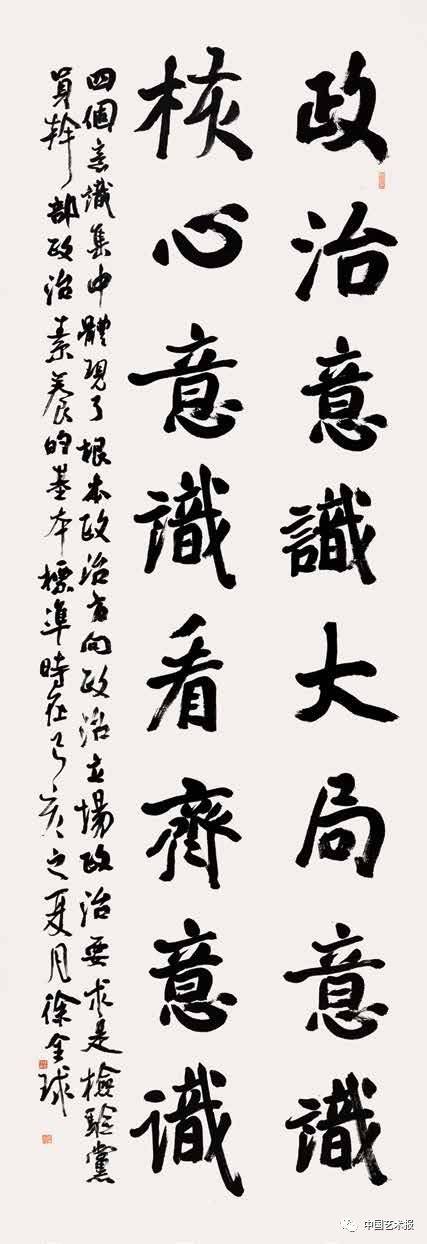 政治意識大局意識
核心意識看齊意識
四個意識集中體現了根本政治方向政治立場政治要求是檢驗黨
員幹部政治素養的基本標準時在己亥之夏月徐金球
中国艺术报